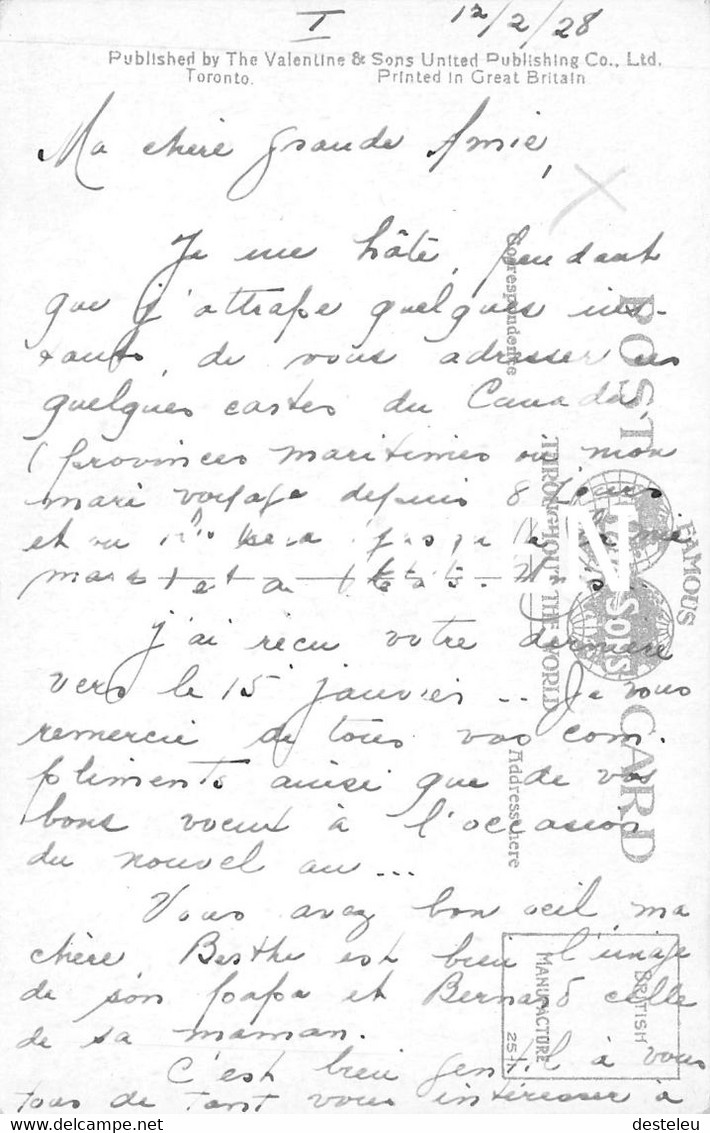 I 12/2/28
Published by The Valentine & Sons United Publishing Co., Ltd.
Toronto. Printed in Great Britain
Ma chère grande Amie,
Je me hâte, pendant
que j'attrape quelques ins-
tants, de vous adresser ces
quelques cartes du Canada,
(provinces maritimes où mon
mari voyage depuis 8 jours
et où il sera jusqu'à
J'ai reçu votre dernière
vers le 15 janvier... Je vous
remercie de tous vos com-
pliments ainsi que de vos
bons voeux à l'occasion
du nouvel an...
Vous avez bon oeil, ma
chère, Berthe est bien l'image
de son papa et Bernard celle
de sa maman.
C'est bien gentil à vous
tous de tant vous intéresser à
POST CARD
Correspondence
Address Here
FAMOUS
THROUGHOUT THE WORLD
SONS
BRITISH
MANUFACTURE
delcampe.net
desteleu